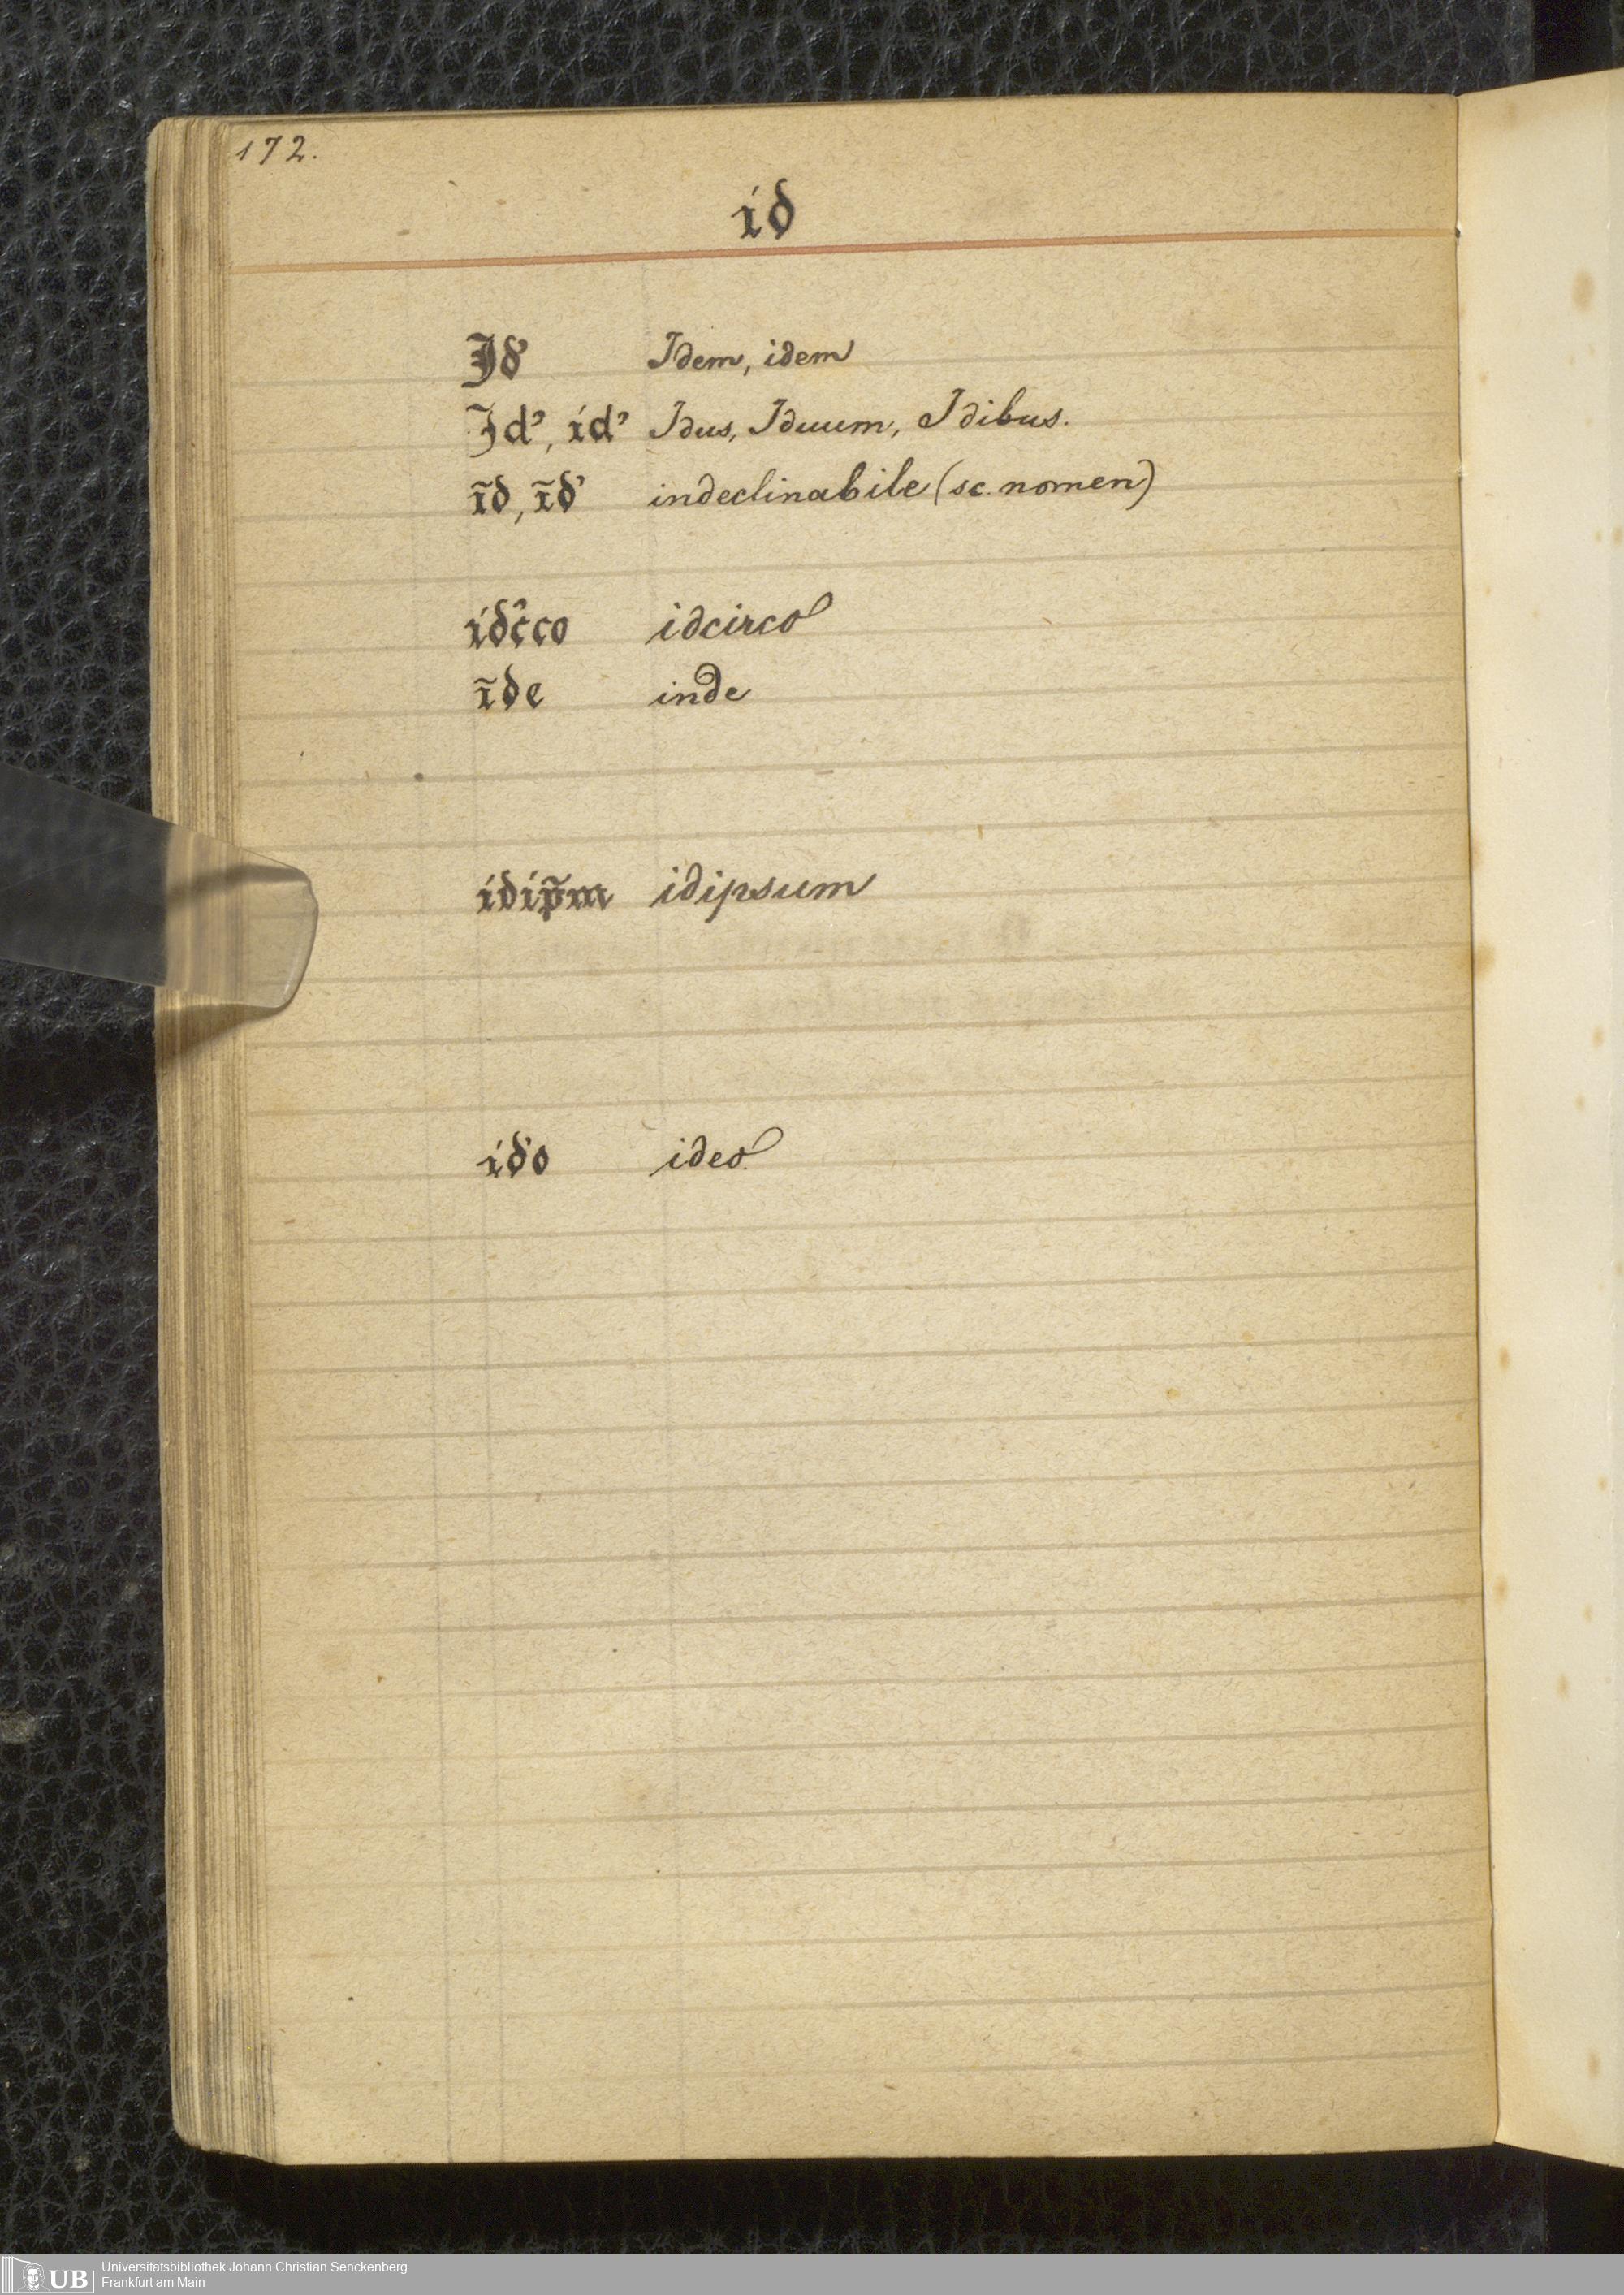 172.
id
Id' Idem, idem
Id', id' Idus, Iduum, Idibus.
īd, īd' indeclinabile (sc. nomen)
idc̑co idcirco
īde inde
idip̄m idipsum
id'o ideo.
Universitätsbibliothek Johann Christian Senckenberg
UB Frankfurt am Main